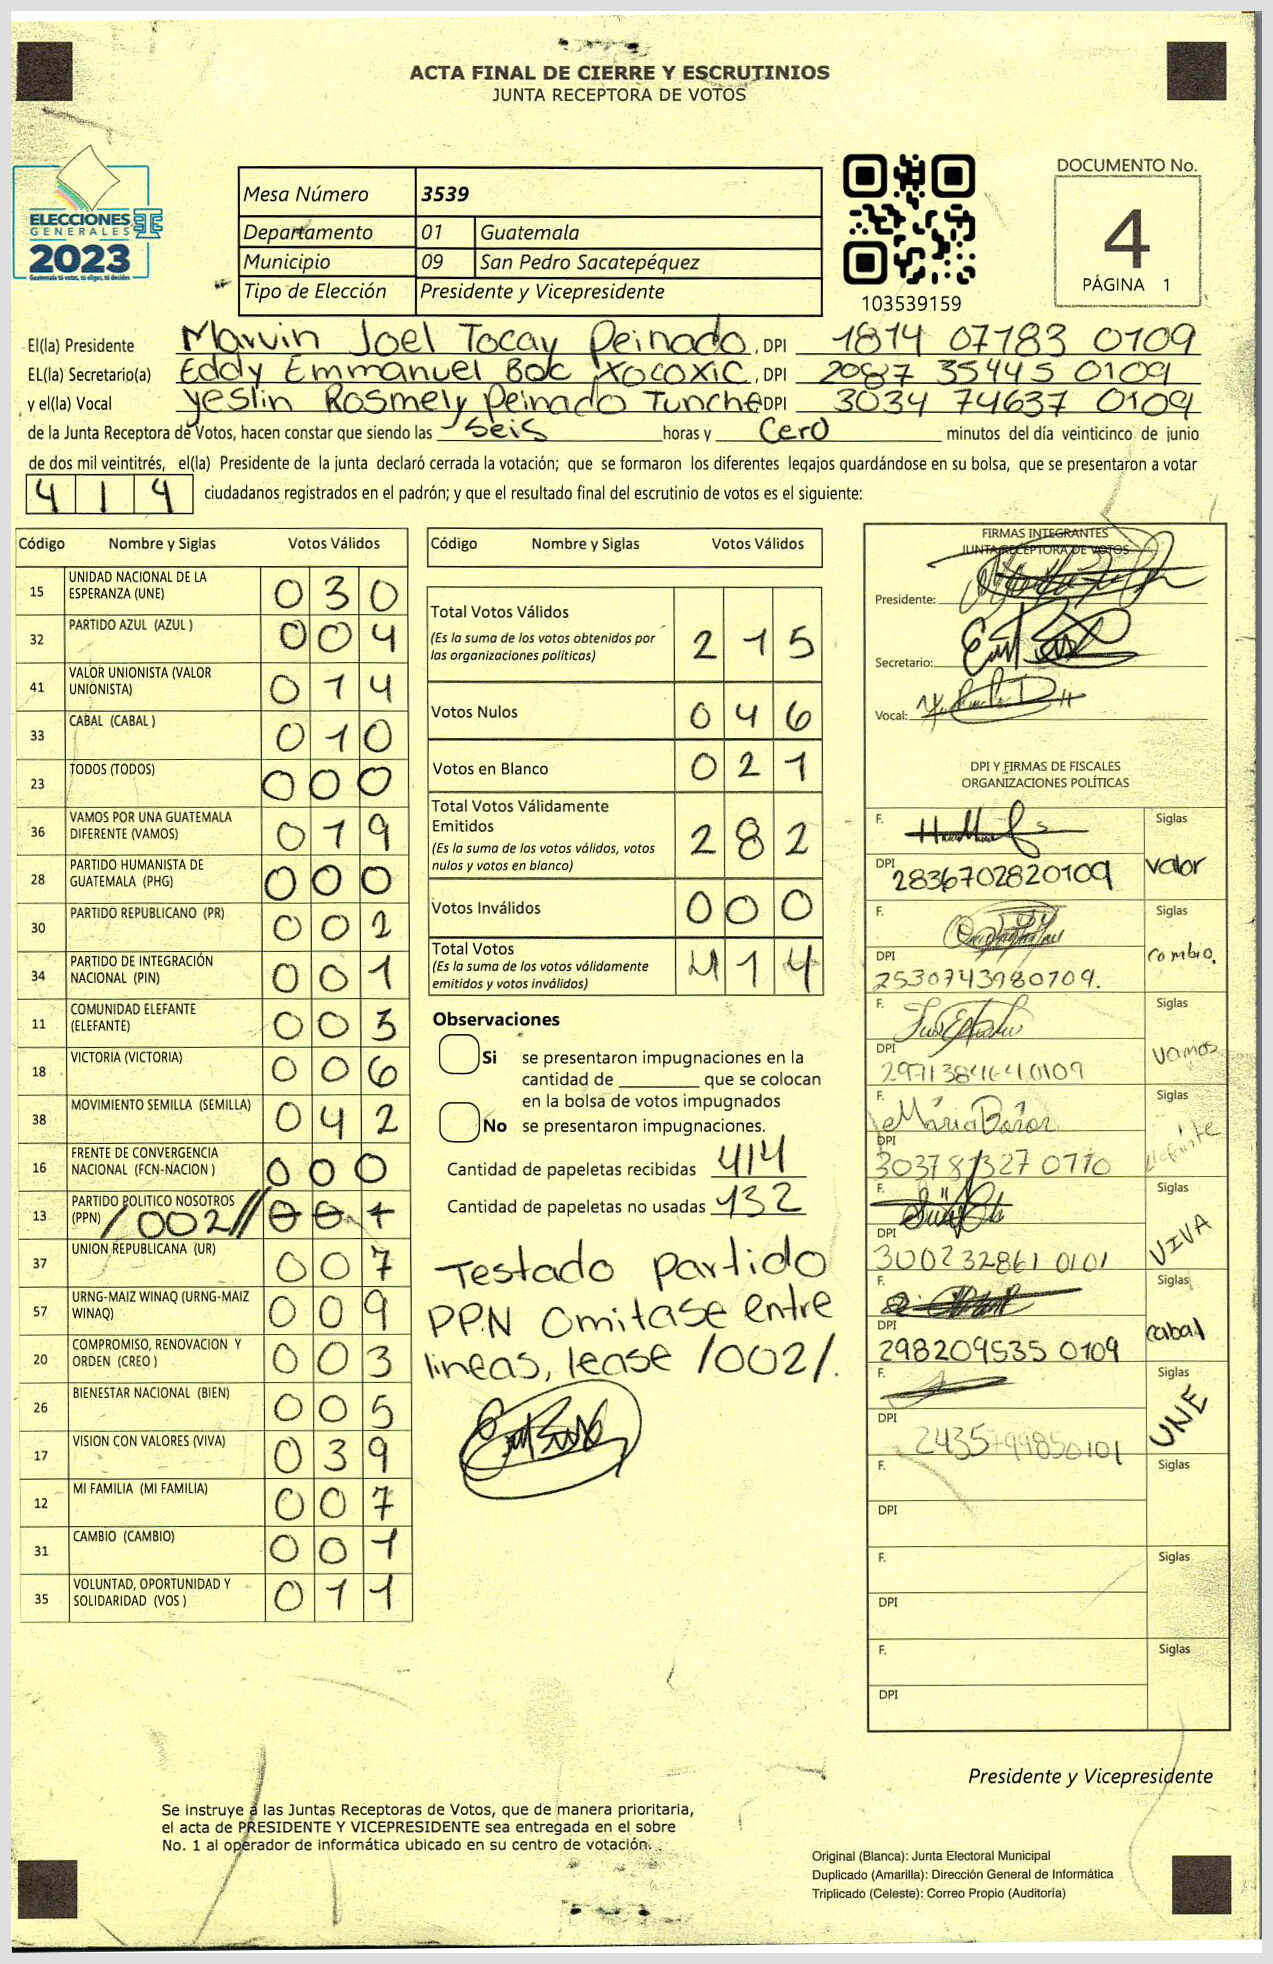 ACTA FINAL DE CIERRE Y ESCRUTINIOS
JUNTA RECEPTORA DE VOTOS
ELECCIONES
GENERALES
2023
Guatemala tú votas, tú eliges, tú decides
Mesa Número 3539
Departamento 01 Guatemala
Municipio 09 San Pedro Sacatepéquez
Tipo de Elección Presidente y Vicepresidente
103539159
DOCUMENTO No.
4
PÁGINA 1
El(la) Presidente Marvin Joel Tocay Peinado, DPI 1814 07183 0109
EL(la) Secretario(a) Eddy Emmanuel Boc Xocoxic, DPI 2087 35445 0109
y el(la) Vocal Yeslin Rosmely Peinado Tunche DPI 3034 74637 0109
de la Junta Receptora de Votos, hacen constar que siendo las Seis horas y Cero minutos del día veinticinco de junio
de dos mil veintitrés, el(la) Presidente de la junta declaró cerrada la votación; que se formaron los diferentes legajos guardándose en su bolsa, que se presentaron a votar
414 ciudadanos registrados en el padrón; y que el resultado final del escrutinio de votos es el siguiente:
Código Nombre y Siglas Votos Válidos
15 UNIDAD NACIONAL DE LA ESPERANZA (UNE) 030
32 PARTIDO AZUL (AZUL ) 004
41 VALOR UNIONISTA (VALOR UNIONISTA) 014
33 CABAL (CABAL ) 010
23 TODOS (TODOS) 000
36 VAMOS POR UNA GUATEMALA DIFERENTE (VAMOS) 019
28 PARTIDO HUMANISTA DE GUATEMALA (PHG) 000
30 PARTIDO REPUBLICANO (PR) 002
34 PARTIDO DE INTEGRACIÓN NACIONAL (PIN) 001
11 COMUNIDAD ELEFANTE (ELEFANTE) 003
18 VICTORIA (VICTORIA) 006
38 MOVIMIENTO SEMILLA (SEMILLA) 042
16 FRENTE DE CONVERGENCIA NACIONAL (FCN-NACION ) 000
13 PARTIDO POLITICO NOSOTROS (PPN) /002// 001
37 UNION REPUBLICANA (UR) 007
57 URNG-MAIZ WINAQ (URNG-MAIZ WINAQ) 009
20 COMPROMISO, RENOVACION Y ORDEN (CREO ) 003
26 BIENESTAR NACIONAL (BIEN) 005
17 VISION CON VALORES (VIVA) 039
12 MI FAMILIA (MI FAMILIA) 007
31 CAMBIO (CAMBIO) 001
35 VOLUNTAD, OPORTUNIDAD Y SOLIDARIDAD (VOS ) 011
Código Nombre y Siglas Votos Válidos
Total Votos Válidos 215
(Es la suma de los votos obtenidos por
las organizaciones políticas)
Votos Nulos 046
Votos en Blanco 021
Total Votos Válidamente
Emitidos 282
(Es la suma de los votos válidos, votos
nulos y votos en blanco)
Votos Inválidos 000
Total Votos 414
(Es la suma de los votos válidamente
emitidos y votos inválidos)
Observaciones
Si se presentaron impugnaciones en la
cantidad de ________ que se colocan
en la bolsa de votos impugnados
No se presentaron impugnaciones.
Cantidad de papeletas recibidas 414
Cantidad de papeletas no usadas 132
Testado partido
PPN Omitase entre
lineas, lease /002/.
FIRMAS INTEGRANTES
JUNTA RECEPTORA DE VOTOS
Presidente:
Secretario:
Vocal:
DPI Y FIRMAS DE FISCALES
ORGANIZACIONES POLÍTICAS
F. Siglas
DPI 2836702820109 Valor
F. Siglas
DPI 2530743980709. Cambio.
F. Siglas
DPI 2971384640109 Vamos
F. Siglas
DPI 3037 81327 0110 Elefante
F. Siglas
DPI 300232861 0101 VIVA
F. Siglas
DPI 298209535 0109 cabal
F. Siglas
DPI 2435799850101 UNE
F. Siglas
DPI
F. Siglas
DPI
F. Siglas
DPI
Presidente y Vicepresidente
Se instruye a las Juntas Receptoras de Votos, que de manera prioritaria,
el acta de PRESIDENTE Y VICEPRESIDENTE sea entregada en el sobre
No. 1 al operador de informática ubicado en su centro de votación.
Original (Blanca): Junta Electoral Municipal
Duplicado (Amarilla): Dirección General de Informática
Triplicado (Celeste): Correo Propio (Auditoría)